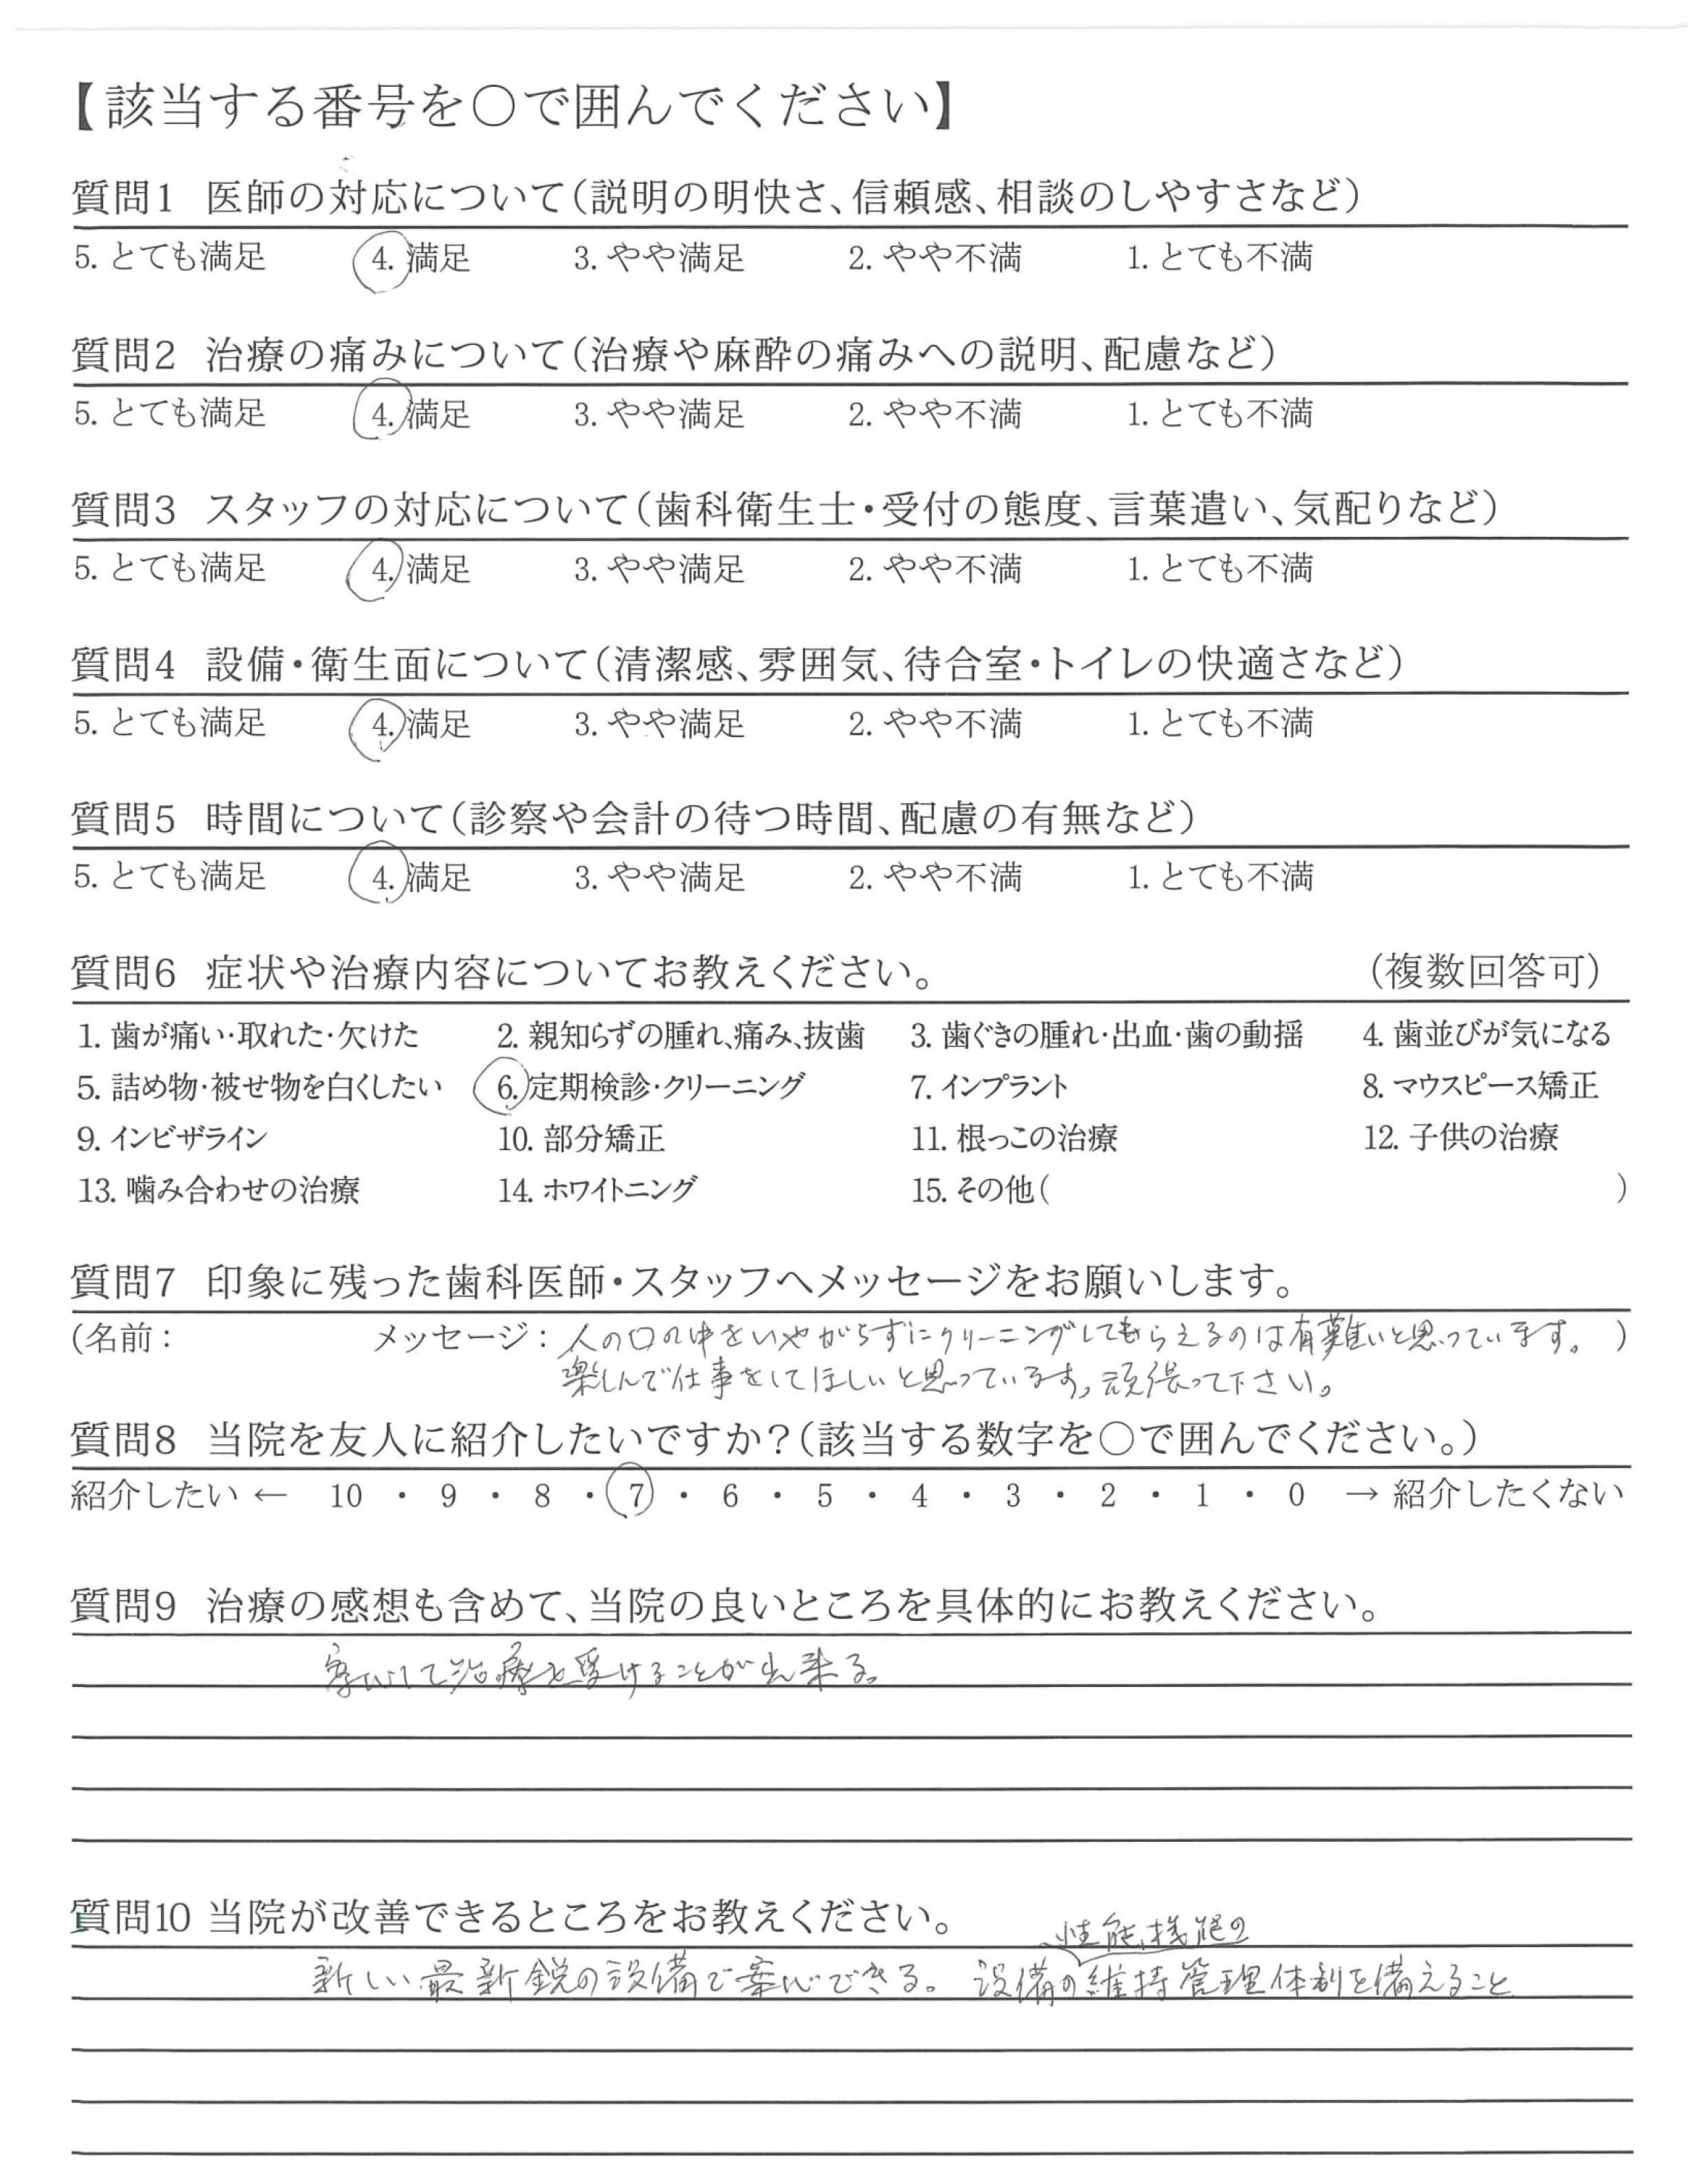 【該当する番号を○で囲んでください】
質問1 医師の対応について(説明の明快さ、信頼感、相談のしやすさなど)
5. とても満足 4. 満足 3. やや満足 2. やや不満 1. とても不満
質問2 治療の痛みについて(治療や麻酔の痛みへの説明、配慮など)
5. とても満足 4. 満足 3. やや満足 2. やや不満 1. とても不満
質問3 スタッフの対応について(歯科衛生士・受付の態度、言葉遣い、気配りなど)
5. とても満足 4. 満足 3. やや満足 2. やや不満 1. とても不満
質問4 設備・衛生面について(清潔感、雰囲気、待合室・トイレの快適さなど)
5. とても満足 4. 満足 3. やや満足 2. やや不満 1. とても不満
質問5 時間について(診察や会計の待つ時間、配慮の有無など)
5. とても満足 4. 満足 3. やや満足 2. やや不満 1. とても不満
質問6 症状や治療内容についてお教えください。 (複数回答可)
1. 歯が痛い・取れた・欠けた 2. 親知らずの腫れ、痛み、抜歯 3. 歯ぐきの腫れ・出血・歯の動揺 4. 歯並びが気になる
5. 詰め物・被せ物を白くしたい 6. 定期検診・クリーニング 7. インプラント 8. マウスピース矯正
9. インビザライン 10. 部分矯正 11. 根っこの治療 12. 子供の治療
13. 噛み合わせの治療 14. ホワイトニング 15. その他( )
質問7 印象に残った歯科医師・スタッフへメッセージをお願いします。
(名前: メッセージ: 人の口の中をいやがらずにクリーニングしてもらえるのは有難いと思っています。 )
楽しんで仕事をしてほしいと思っています。頑張って下さい。
質問8 当院を友人に紹介したいですか?(該当する数字を○で囲んでください。)
紹介したい ← 10 ・ 9 ・ 8 ・ 7 ・ 6 ・ 5 ・ 4 ・ 3 ・ 2 ・ 1 ・ 0 → 紹介したくない
質問9 治療の感想も含めて、当院の良いところを具体的にお教えください。
安心して治療を受けることが出来る。
質問10 当院が改善できるところをお教えください。
性能、機能の
新しい最新鋭の設備で安心できる。 設備の維持管理体制を備えること